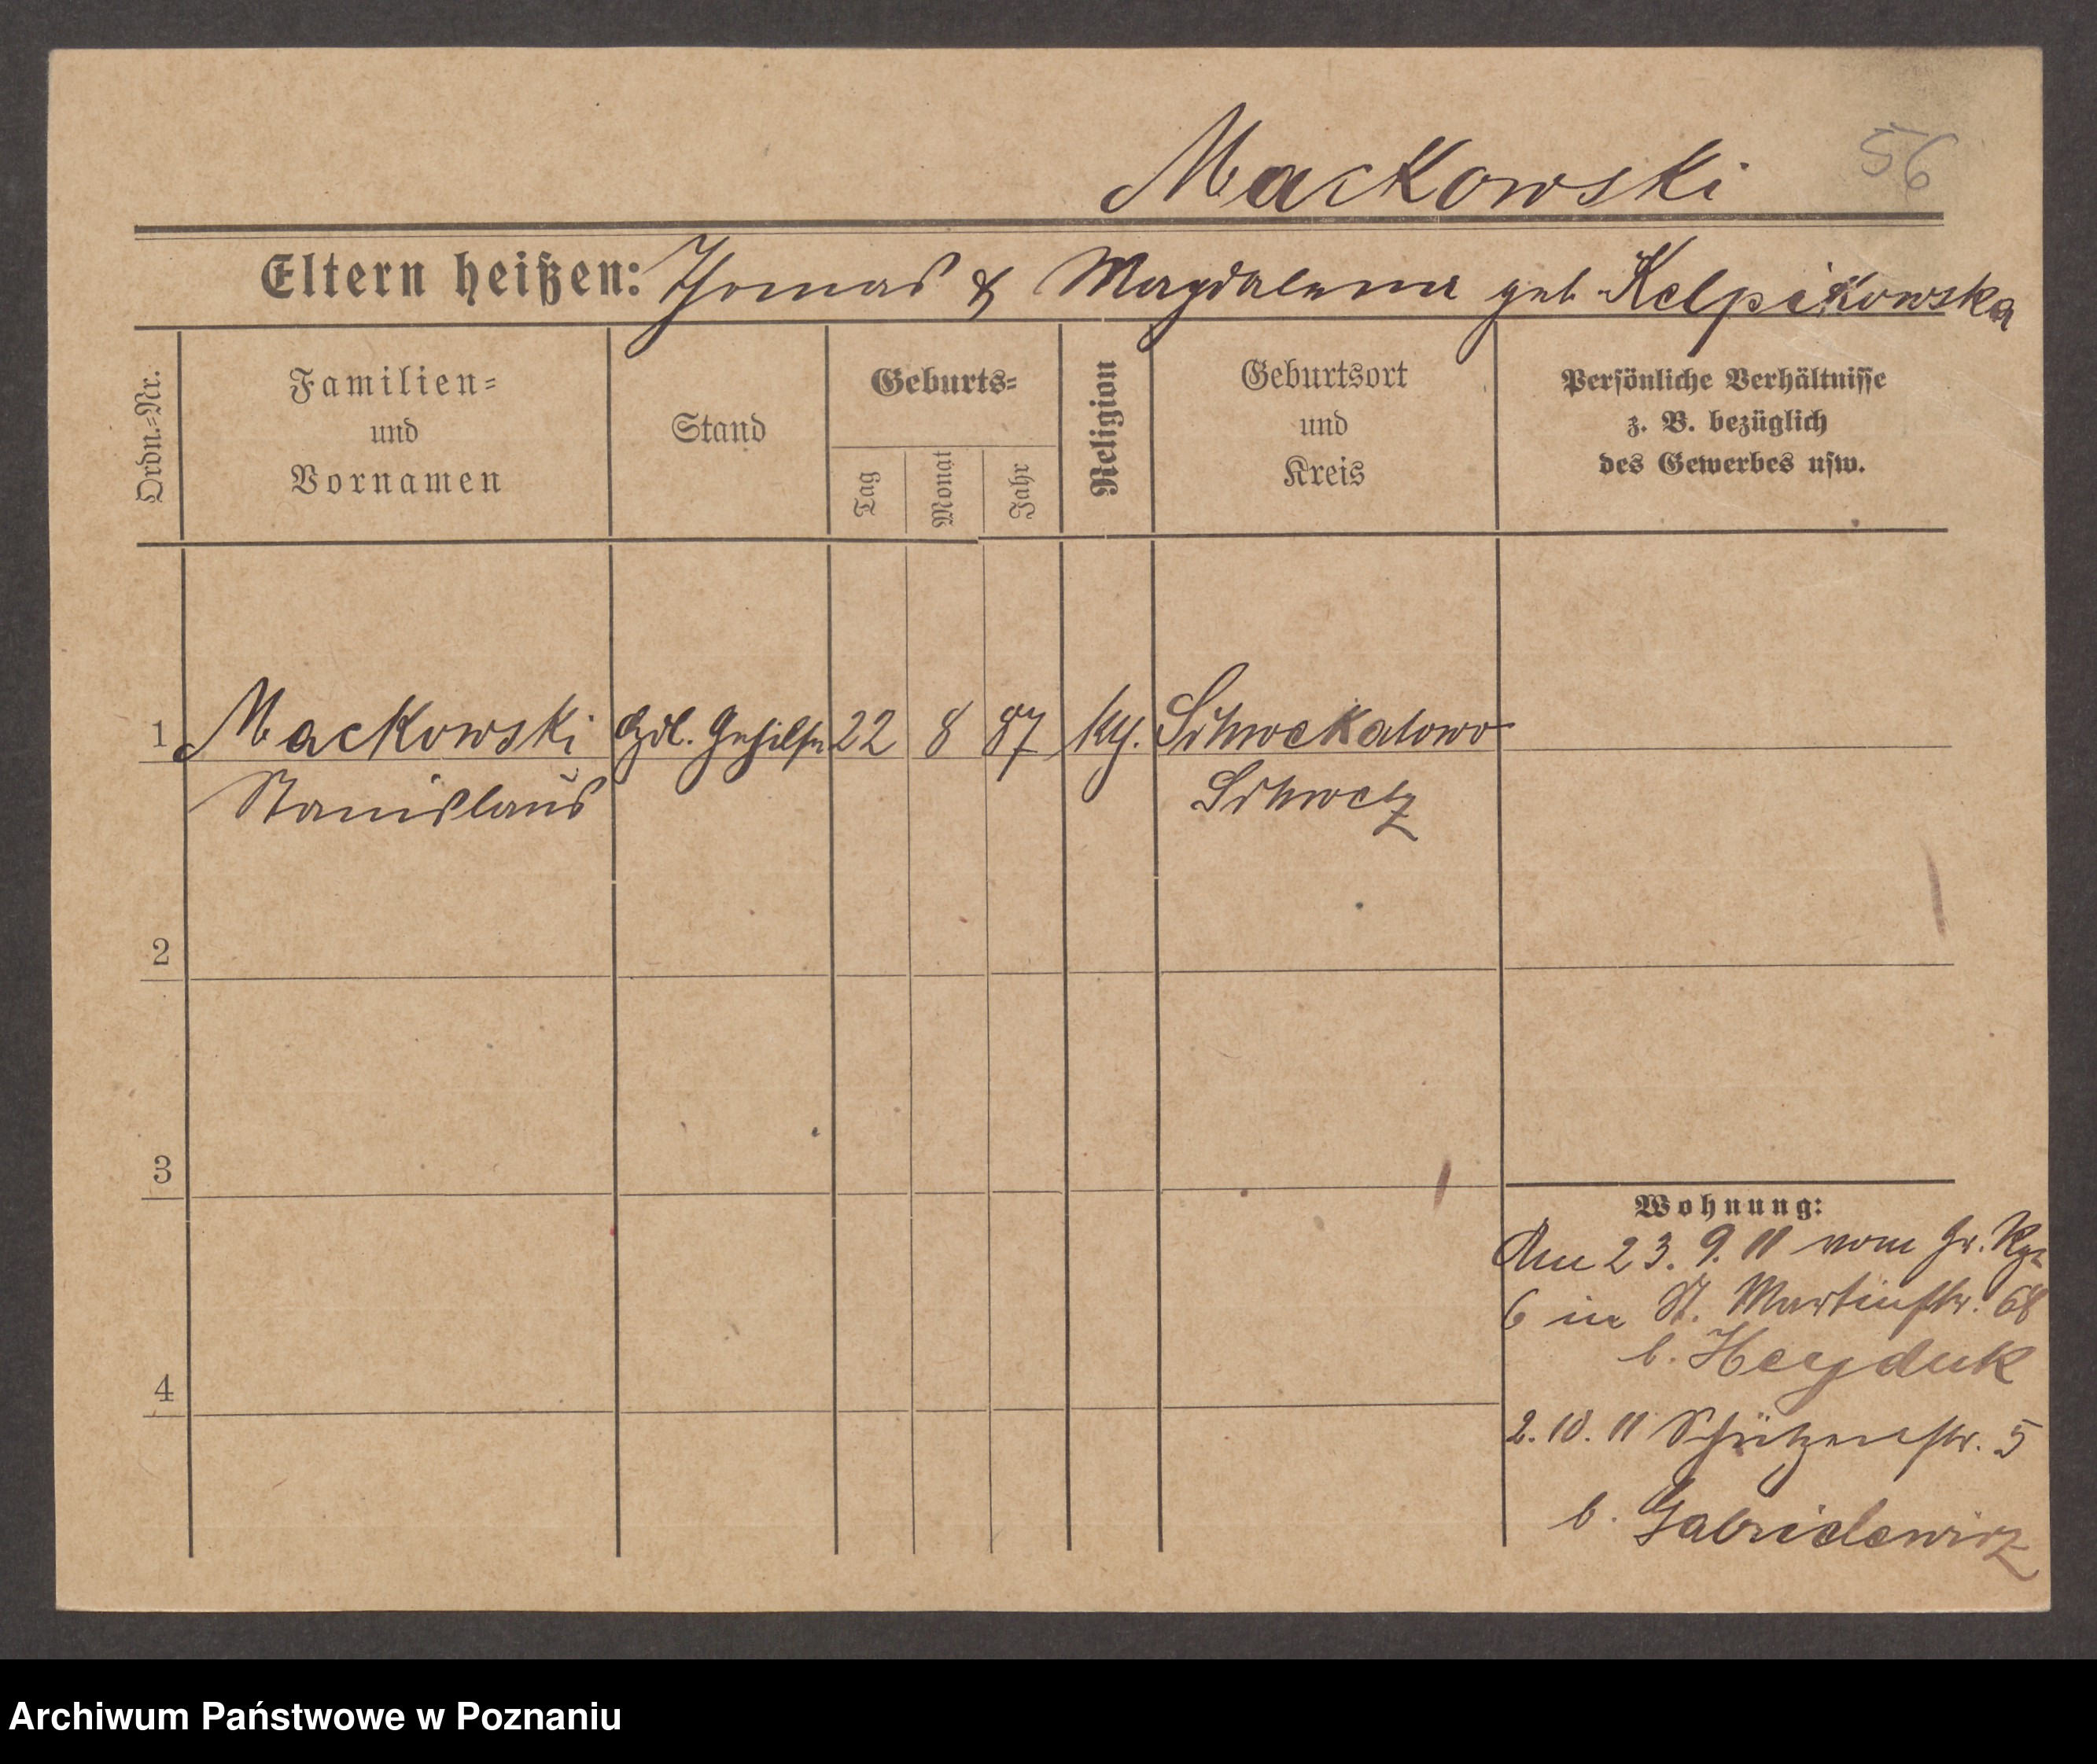 Mackowski
56
Eltern heißen: Thomas & Magdalena geb. Kelpikowska
Ordn.=Nr.
Familien=
und
Vornamen
Stand
Geburts=
Tag
Monat
Jahr
Religion
Geburtsort
und
Kreis
Persönliche Verhältnisse
z. B. bezüglich
des Gewerbes usw.
1 Mackowski Hdl. Gehilfe 22 8 87 kt. Schwekatowo
Stanislaus Schwetz
2
3
4
Wohnung:
Am 23. 9. 11 vom Gr.
6 in St. Martinstr. 68
b. Heyduk
2. 10. 11 Schützenstr. 5
b. Gabrielewicz
Archiwum Państwowe w Poznaniu